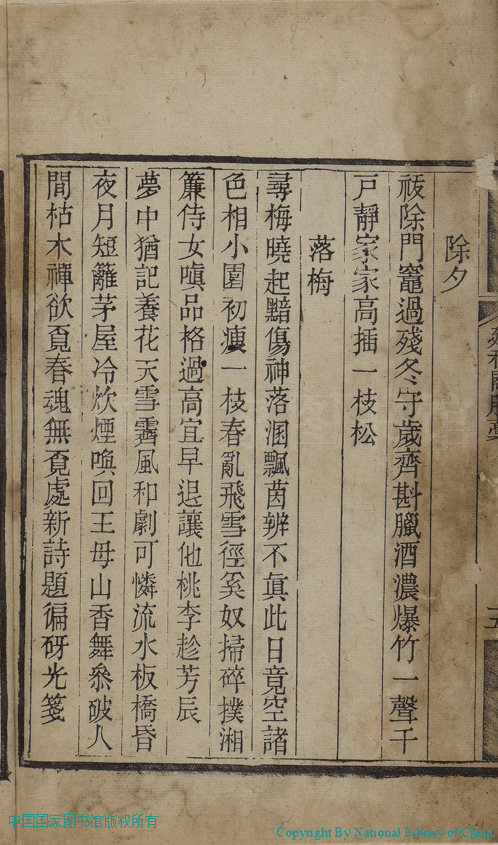 除夕
祓除門竈過殘冬守歲齊斟臘酒濃爆竹一聲千
戸靜家家高插一枝松
落梅
尋梅曉起黯傷神落溷飄茵辨不眞此日竟空諸
色相小園初瘦一枝春亂飛雪徑奚奴掃碎撲湘
簾侍女嗔品格過高宜早退讓他桃李趁芳辰
夢中猶記養花天雪霽風和劇可憐流水板橋昏
夜月短籬茅屋冷炊煙喚回王母山香舞叅破人
間枯木禪欲覔春魂無覔處新詩題徧砑光箋
中国国家图书馆版权所有
Copyright By National Library of China